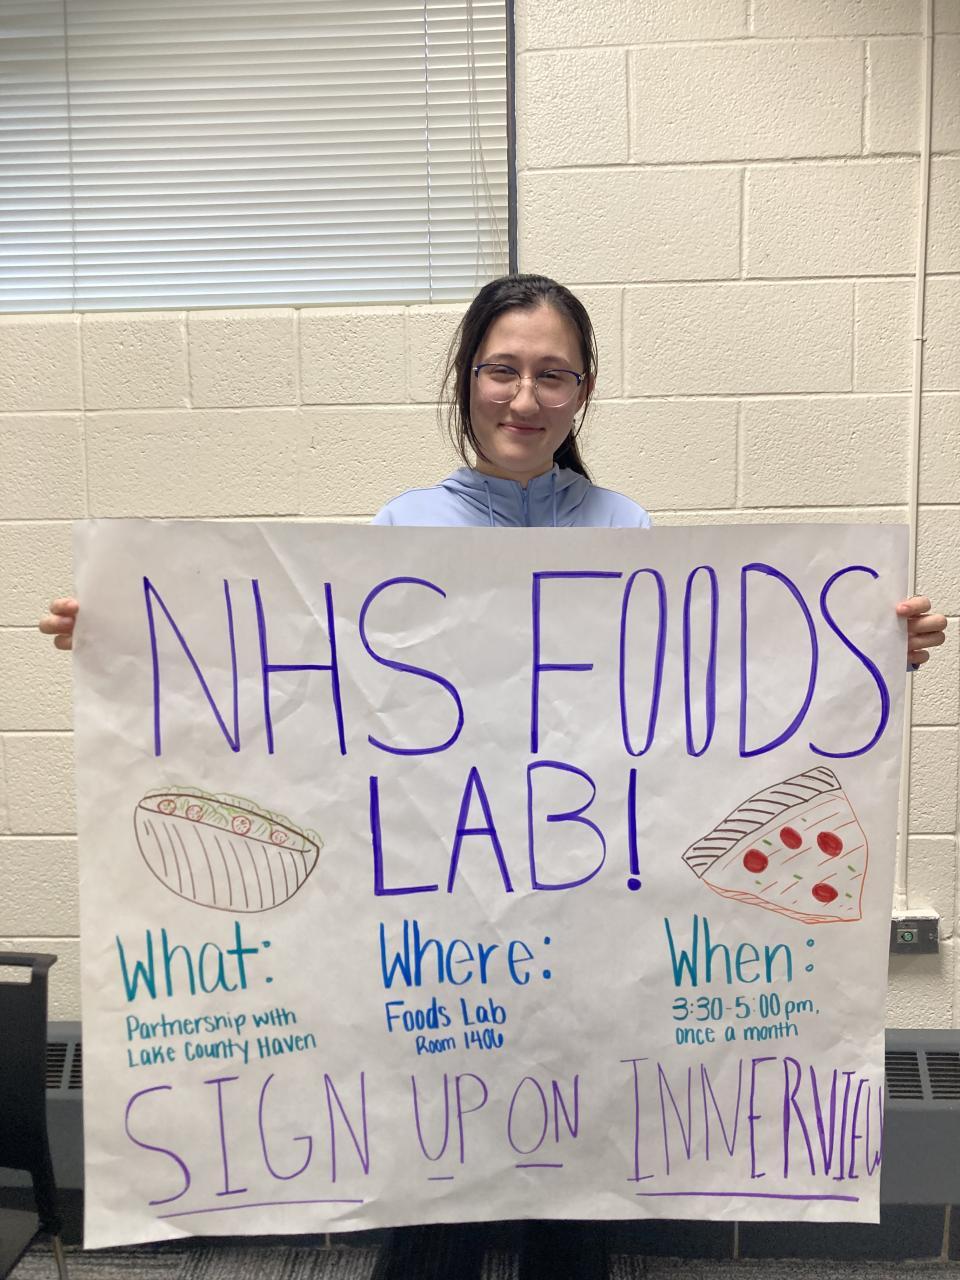 NHS FOODS
LAB!
What:
Partnership with
Lake County Haven
Where:
Foods Lab
Room 1406
When:
3:30-5:00pm,
once a month
SIGN UP ON INNERVIEW